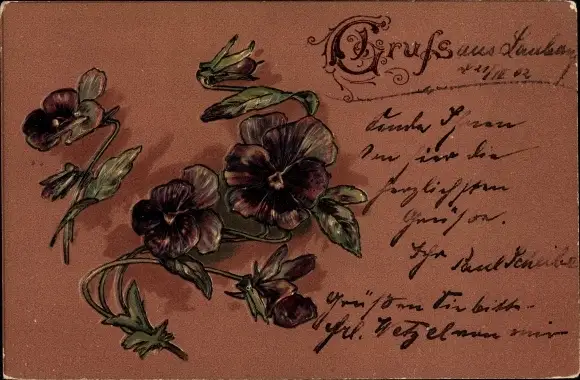 Gruss aus Lauban
d. 21/IX 02
Sende Ihnen
von hier die
herzlichsten
Grüße.
Ihr Paul Scheibe
Grüßen Sie bitte
Frl. Wetzel von mir